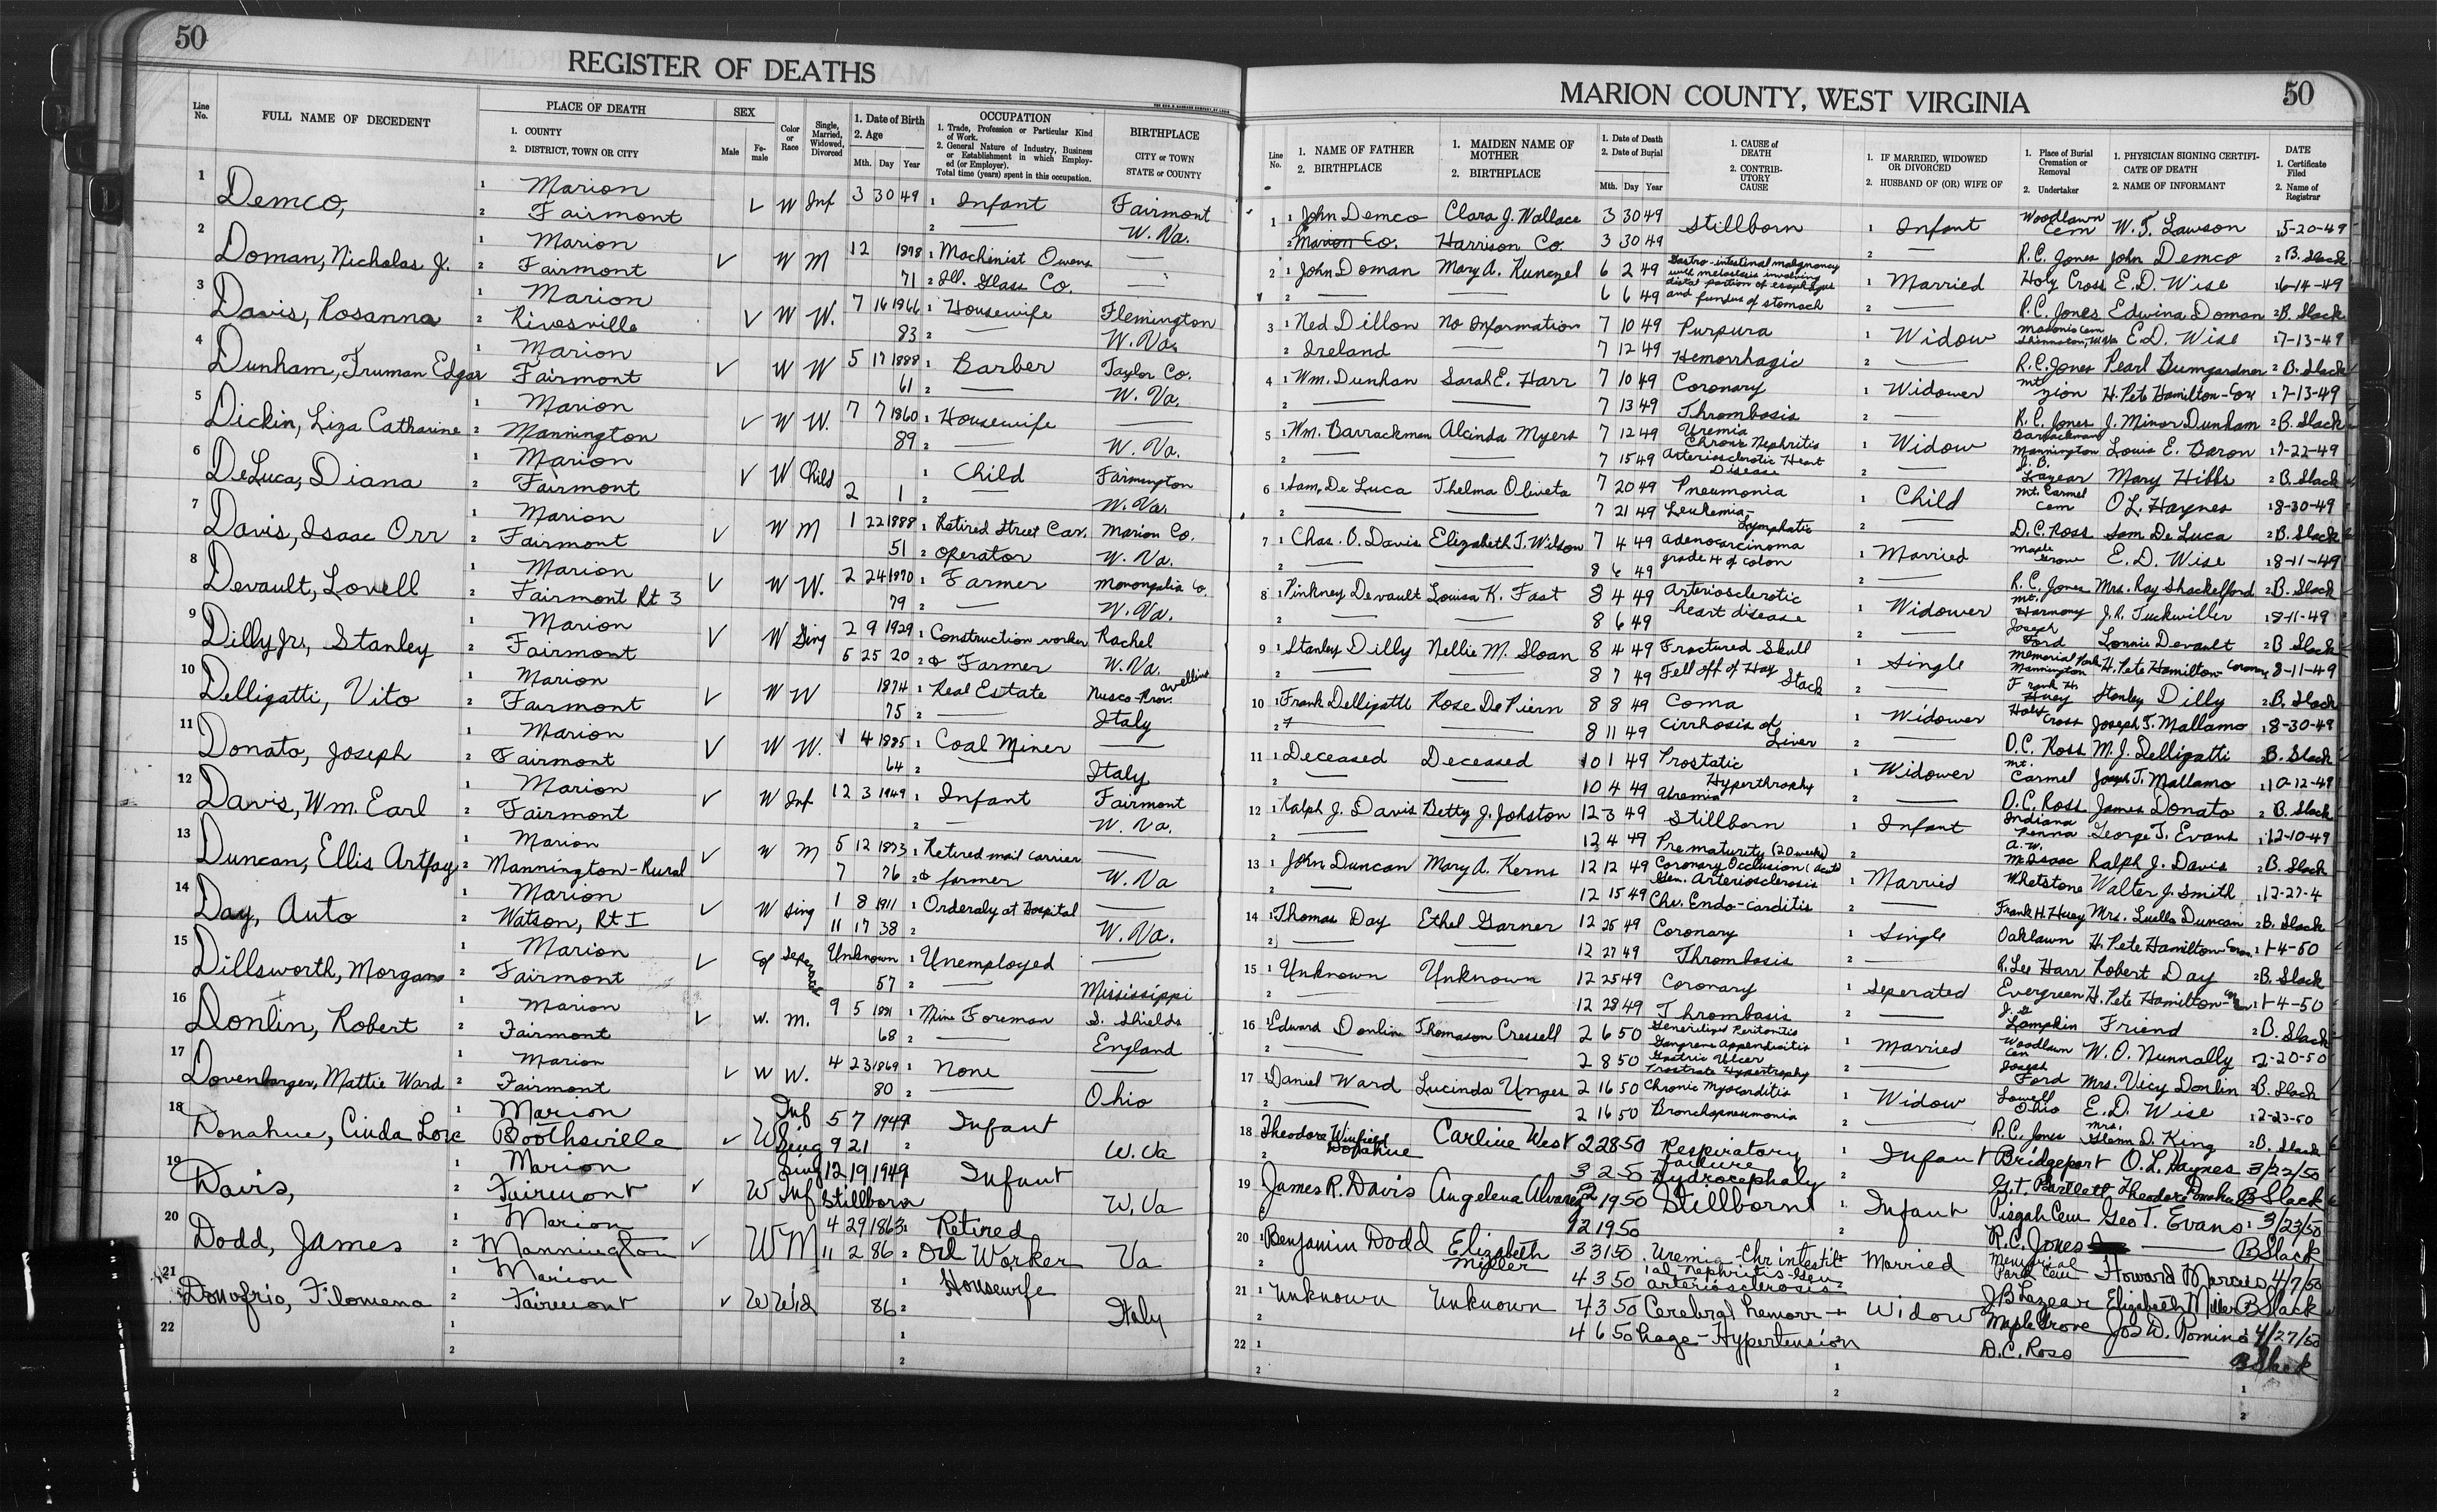 50
REGISTER OF DEATHS
Line No. FULL NAME OF DECEDENT PLACE OF DEATH 1. COUNTY 2. DISTRICT, TOWN OR CITY SEX Male Fe-male Color or Race Single, Married, Widowed, Divorced 1. Date of Birth 2. Age Mth. Day Year OCCUPATION 1. Trade, Profession or Particular Kind of Work. 2. General Nature of Industry, Business or Establishment in which Employ-ed (or Employer). Total time (years) spent in this occupation. BIRTHPLACE CITY or TOWN STATE or COUNTY
1 Demco, 1 Marion ✓ W Inf 3 30 49 1 Infant Fairmont
2 Fairmont 2 — W. Va.
2 Doman, Nicholas J. 1 Marion ✓ W M 12 1898 1 Machinist Owens —
2 Fairmont 71 2 Ill. Glass Co. —
3 Davis, Rosanna 1 Marion ✓ W W. 7 16 1966 1 Housewife Flemington
2 Rivesville 83 2 — W. Va.
4 Dunham, Truman Edgar 1 Marion ✓ W W 5 17 1888 1 Barber Taylor Co.
Fairmont 61 2 — W. Va.
5 Dickin, Liza Catharine 1 Marion ✓ W W. 7 7 1860 1 Housewife —
2 Mannington 89 2 — W. Va.
6 DeLuca, Diana 1 Marion ✓ W Child 1 Child Farmington
2 Fairmont 2 1 2 — W. Va.
7 Davis, Isaac Orr 1 Marion ✓ W M 1 22 1888 1 Retired Street Car. Marion Co.
2 Fairmont 51 2 operator W. Va.
8 Devault, Lovell 1 Marion ✓ W W. 2 24 1870 1 Farmer Monongalia Co.
2 Fairmont Rt 3 79 2 — W. Va.
9 Dilly Jr, Stanley 1 Marion ✓ W Sing 2 9 1929 1 Construction worker Rachel
2 Fairmont 5 25 20 2 & Farmer W. Va.
10 Delligatti, Vito 1 Marion ✓ W W 1874 1 Real Estate Nusco-Prov. avellino
2 Fairmont 75 2 — Italy
11 Donato, Joseph 1 Marion ✓ W W. 1 4 1885 1 Coal Miner —
2 Fairmont 64 2 — Italy
12 Davis, Wm. Earl 1 Marion ✓ W Inf 12 3 1949 1 Infant Fairmont
2 Fairmont 2 — W. Va.
13 Duncan, Ellis Artfay 1 Marion ✓ W M 5 12 1873 1 Retired mail carrier —
2 Mannington-Rural 7 76 2 & farmer W. Va
14 Day, Auto 1 Marion ✓ W Sing 1 8 1911 1 Orderaly at Hospital —
2 Watson, Rt I 11 17 38 2 W. Va.
15 Dillsworth, Morgans 1 Marion ✓ Col Seperated Unknown 1 Unemployed —
2 Fairmont 57 2 — Mississippi
16 Donlin, Robert 1 Marion ✓ W. M. 9 5 1881 1 Mine Foreman S. Shields
2 Fairmont 68 2 — England
17 Dovenbarger, Mattie Ward 1 Marion ✓ W W. 4 23 1869 1 None —
2 Fairmont 80 2 — Ohio
18 Donahue, Cinda Lore 1 Marion ✓ W Inf 5 7 1949 Infant
Boothsville Sing 9 21 2 W. Va
19 Davis, 1 Marion ✓ W Sing 12 19 1949 Infant
2 Fairmont Inf Stillborn W. Va
20 Dodd, James 1 Marion ✓ W M 4 29 1863 1 Retired
2 Mannington 11 2 86 2 Oil Worker Va
21 Donofrio, Filomena 1 Marion ✓ W Wid 1 Housewife
2 Fairmont 86 2 Italy
22 1 1
2 2
50
MARION COUNTY, WEST VIRGINIA
Line No. 1. NAME OF FATHER 2. BIRTHPLACE 1. MAIDEN NAME OF MOTHER 2. BIRTHPLACE 1. Date of Death 2. Date of Burial Mth. Day Year 1. CAUSE of DEATH 2. CONTRIB-UTORY CAUSE 1. IF MARRIED, WIDOWED OR DIVORCED 2. HUSBAND OF (OR) WIFE OF 1. Place of Burial Cremation or Removal 2. Undertaker 1. PHYSICIAN SIGNING CERTIFI-CATE OF DEATH 2. NAME OF INFORMANT DATE 1. Certificate Filed 2. Name of Registrar
1 1 John Demco Clara J. Wallace 3 30 49 Stillborn 1 Infant Woodlawn Cem W. T. Lawson 5-20-49
2 Marion Co. Harrison Co. 3 30 49 2 — R.C. Jones John Demco 2 B. Slack
2 1 John Doman Mary A. Kunczel 6 2 49 Gastro-intestinal malignancy with metastasis involving 1 Married Holy Cross E.D. Wise 1 6-14-49
2 — — 6 6 49 distal portion of esophagus and fundus of stomach 2 — R.C. Jones Edwina Doman 2 B. Slack
3 1 Ned Dillon No Information 7 10 49 Purpura 1 Widow Masonic Cem Shinnston, W.Va E.D. Wise 1 7-13-49
2 Ireland 7 12 49 Hemorrhagic 2 — R.C. Jones Pearl Bumgardner 2 B. Slack
4 1 Wm. Dunhan Sarah E. Harr 7 10 49 Coronary 1 Widower Mt Zion H. Pete Hamilton-Cor 1 7-13-49
2 — — 7 13 49 Thrombosis 2 — R.C. Jones J. Minor Dunham 2 B. Slack
5 1 Wm. Barrackman Alcinda Myers 7 12 49 Uremia Chronic Nephritis 1 Widow Barrackman Mannington Louis E. Baron 1 7-22-49
2 — — 7 15 49 Arteriosclerotic Heart Disease 2 — J. B. Lazear Mary Hibbs 2 B. Slack
6 1 Sam De Luca Thelma Oliveto 7 20 49 Pneumonia 1 Child Mt. Carmel Cem O.L. Haynes 1 8-30-49
2 — — 7 21 49 Leukemia-Lymphatic 2 — D.C. Ross Sam De Luca 2 B. Slack
7 1 Chas. O. Davis Elizabeth T. Wilson 7 4 49 adenocarcinoma 1 Married Maple Grove E. D. Wise 1 8-11-49
2 — 8 6 49 grade 4 of colon 2 — R. C. Jones Mrs. Ray Shackelford 2 B. Slack
8 1 Pinkney Devault Louisa K. Fast 8 4 49 Arteriosclerotic 1 Widower Mt. Harmony J.R. Tuckwiller 1 8-11-49
2 — — 8 6 49 heart disease 2 — Joseph Ford Lonnie Devault 2 B Slack
9 1 Stanley Dilly Nellie M. Sloan 8 4 49 Fractured Skull 1 Single Memorial Park Mannington H. Pete Hamilton-Coroner 1 8-11-49
2 — — 8 7 49 Fell off of Hay Stack 2 — Frank H. Huey Stanley Dilly 2 B. Slack
10 1 Frank Delligatti Rose De Piern 8 8 49 Coma 1 Widower Holy Cross Joseph T. Mallamo 1 8-30-49
2 — — 8 11 49 Cirrhosis of Liver 2 — D.C. Ross M. J. Delligatti B. Slack
11 1 Deceased Deceased 10 1 49 Prostatic 1 Widower Mt. Carmel Joseph T. Mallamo 1 10-12-49
2 — — 10 4 49 Hyperthrophy Uremia 2 — D.C. Ross James Donato 2 B. Slack
12 1 Ralph J. Davis Betty J. Johston 12 3 49 Stillborn 1 Infant Indiana Penna George T. Evans 1 12-10-49
2 — — 12 4 49 Prematurity (20 weeks) 2 A. W. McIsaac Ralph J. Davis 2 B. Slack
13 1 John Duncan Mary A. Kerns 12 12 49 Coronary Occlusion (acute) Gen. Arteriosclerosis 1 Married Whetstone Walter J. Smith 12-27-4
2 — — 12 15 49 Chr. Endo-carditis 2 — Frank H. Huey Mrs. Luella Duncan 2 B. Slack
14 1 Thomas Day Ethel Garner 12 25 49 Coronary 1 Single Oaklawn H. Pete Hamilton-Coron. 1 1-4-50
2 — — 12 27 49 Thrombosis 2 — R. Lee Harr Robert Day 2 B. Slack
15 1 Unknown Unknown 12 25 49 Coronary 1 Seperated Evergreen H. Pete Hamilton 1 1-4-50
2 — — 12 28 49 Thrombasis 2 — J. G Lampkin Friend 2 B. Slack
16 1 Edward Donlin Thomason Cressell 2 6 50 Generilized Peritontis Gangrene Appendicitis 1 Married Woodlawn Cem W. O. Nunnally 2-20-50
2 — — 2 8 50 Gastric Ulcer Prostrate Hypertrophy 2 — Joseph Ford Mrs. Vicy Donlin 2 B. Slack
17 1 Daniel Ward Lucinda Unger 2 16 50 Chronic Myocarditis 1 Widow Lowell Ohio E. D. Wise 1 2-23-50
2 — — 2 16 50 Bronchopneumonia 2 — R.C. Jones Mrs. Glenn D. King 2 B. Slack
18 1 Theodore Winfield Donahue Carline West 2 28 50 Respiratory failure 1 Infant Bridgeport O. L. Haynes 3/22/50
2 3 2 50 Hydrocephaly 2 G.T. Bartlett Theodore Donahue B Slack
19 1 James R. Davis Angelena Alvarez 2 19 50 Stillborn 1 Infant Pisgah Cem Geo T. Evans 1 3/23/50
2 12 19 50 2 R.C. Jones — B Slack
20 1 Benjamin Dodd Elizabeth Miller 3 31 50 Uremia-Chr intestit- Married Memorial Park Cem Howard Marcus 4/7/50
2 4 3 50 ial nephritis-Gen arteriosclerosis J B Lazear Elizabeth Miller B Slack
21 1 Unknown Unknown 4 3 50 Cerebral hemorr- Widow Maple Grove Jos W. Romino 4/27/50
2 4 6 50 hage-Hypertension D.C. Ross — B Slack
22 1 1 1
2 2 2